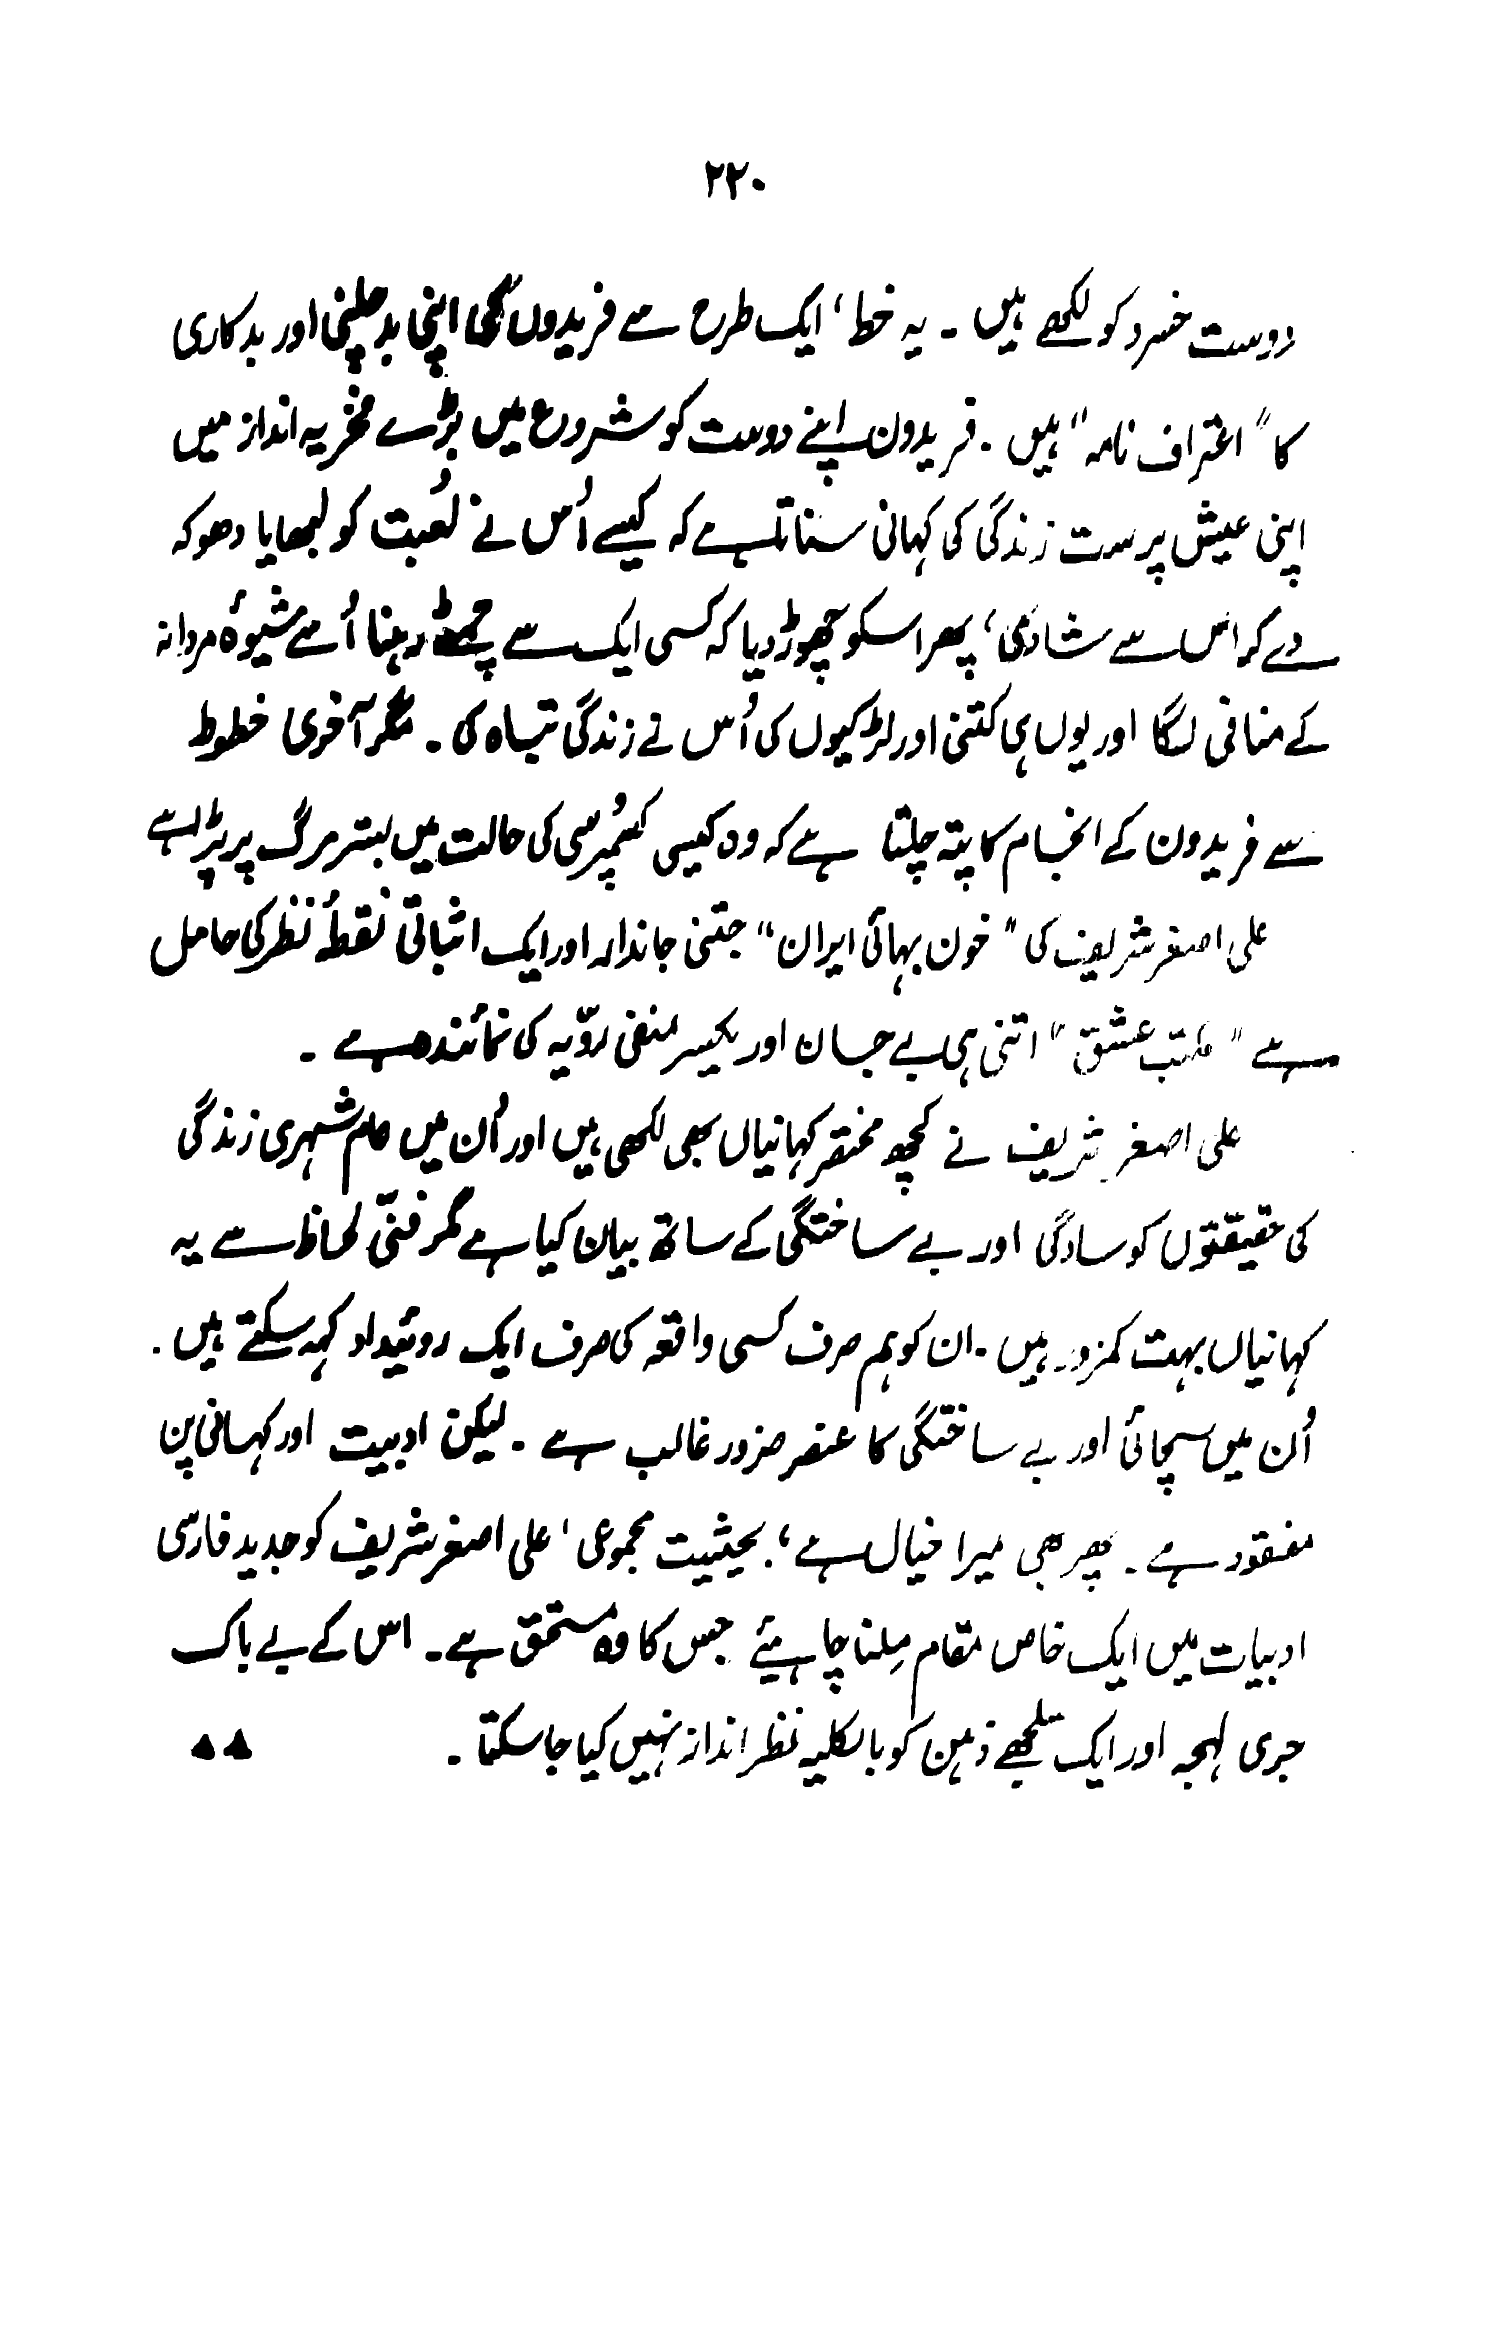 ۲۲۰
دوست خسرو کو لکھے ہیں ۔ یہ خط، ایک طرح سے فریدوں کی اپنی بدچلنی اور بدکاری
کا "اعتراف نامہ" ہیں ۔ فریدون اپنے دوست کو شروع میں بڑے فخریہ انداز میں
اپنی عیش پرست زندگی کی کہانی سناتا ہے کہ کیسے اُس نے لُعبت کو لبھایا دھوکہ
دے کر اس سے شادی کی، پھر اسکو چھوڑ دیا کہ کسی ایک سے چمٹے رہنا اُسے شیوۂ مردانہ
کے منافی لگا اور یوں ہی کتنی اور لڑکیوں کی اُس نے زندگی تباہ کی ۔ مگر آخری خطوط
سے فریدون کے انجام کا پتہ چلتا ہے کہ وہ کیسی کسمُپرسی کی حالت میں بستر مرگ پر پڑا ہے
علی اصغر شریف کی "خون بہائی ایران" جتنی جاندار اور ایک اثباتی نقطۂ نظر کی حامل
ہے "مکتب عشق" اتنی ہی بے جان اور یکسر منفی رویّہ کی نمائندہ ہے ۔
علی اصغر شریف نے کچھ مختصر کہانیاں بھی لکھی ہیں اور اُن میں عام شہری زندگی
کی حقیقتوں کو سادگی اور بے ساختگی کے ساتھ بیان کیا ہے مگر فنّی لحاظ سے یہ
کہانیاں بہت کمزور ہیں ۔ ان کو ہم صرف کسی واقعہ کی صرف ایک روئیداد کہہ سکتے ہیں ۔
اُن میں سچائی اور بے ساختگی کا عنصر ضرور غالب ہے ۔ لیکن ادبیت اور کہانی پن
مفقود ہے ۔ پھر بھی میرا خیال ہے، بحیثیت مجموعی، علی اصغر شریف کو جدید فارسی
ادبیات میں ایک خاص مقام مِلنا چاہیئے جس کا وہ مستحق ہے ۔ اس کے بے باک
جری لہجہ اور ایک سلجھے ذہن کو بالکلیہ نظر انداز نہیں کیا جا سکتا ۔ ▲▲